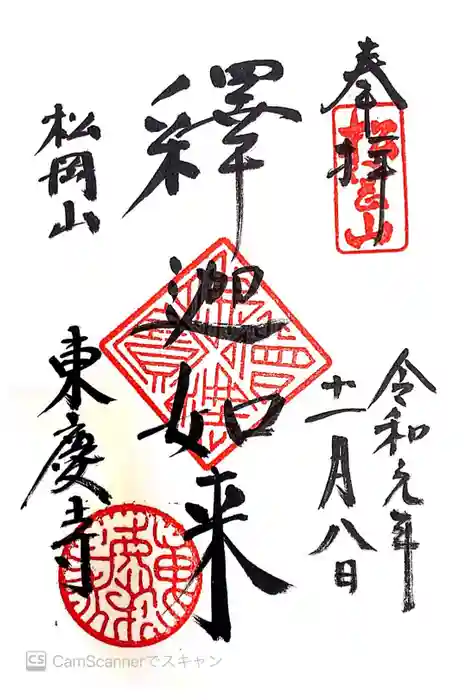 奉拝
令和元年
十一月八日
釋迦如来
松岡山
東慶寺
CS CamScannerでスキャン